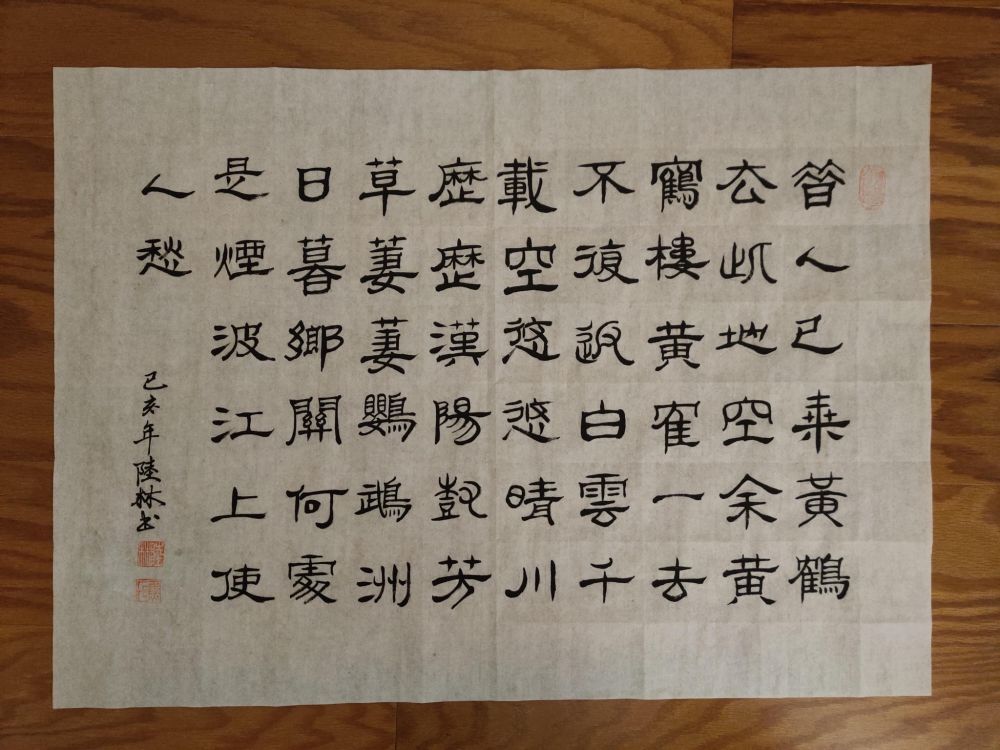 昔人已乘黃鶴
去此地空余黄
鶴樓黄隺一去
不復返白雲千
載空悠悠晴川
歷歷漢陽樹芳
草萋萋鸚鵡洲
日暮鄉關何處
是煙波江上使
人愁
己亥年陸林书